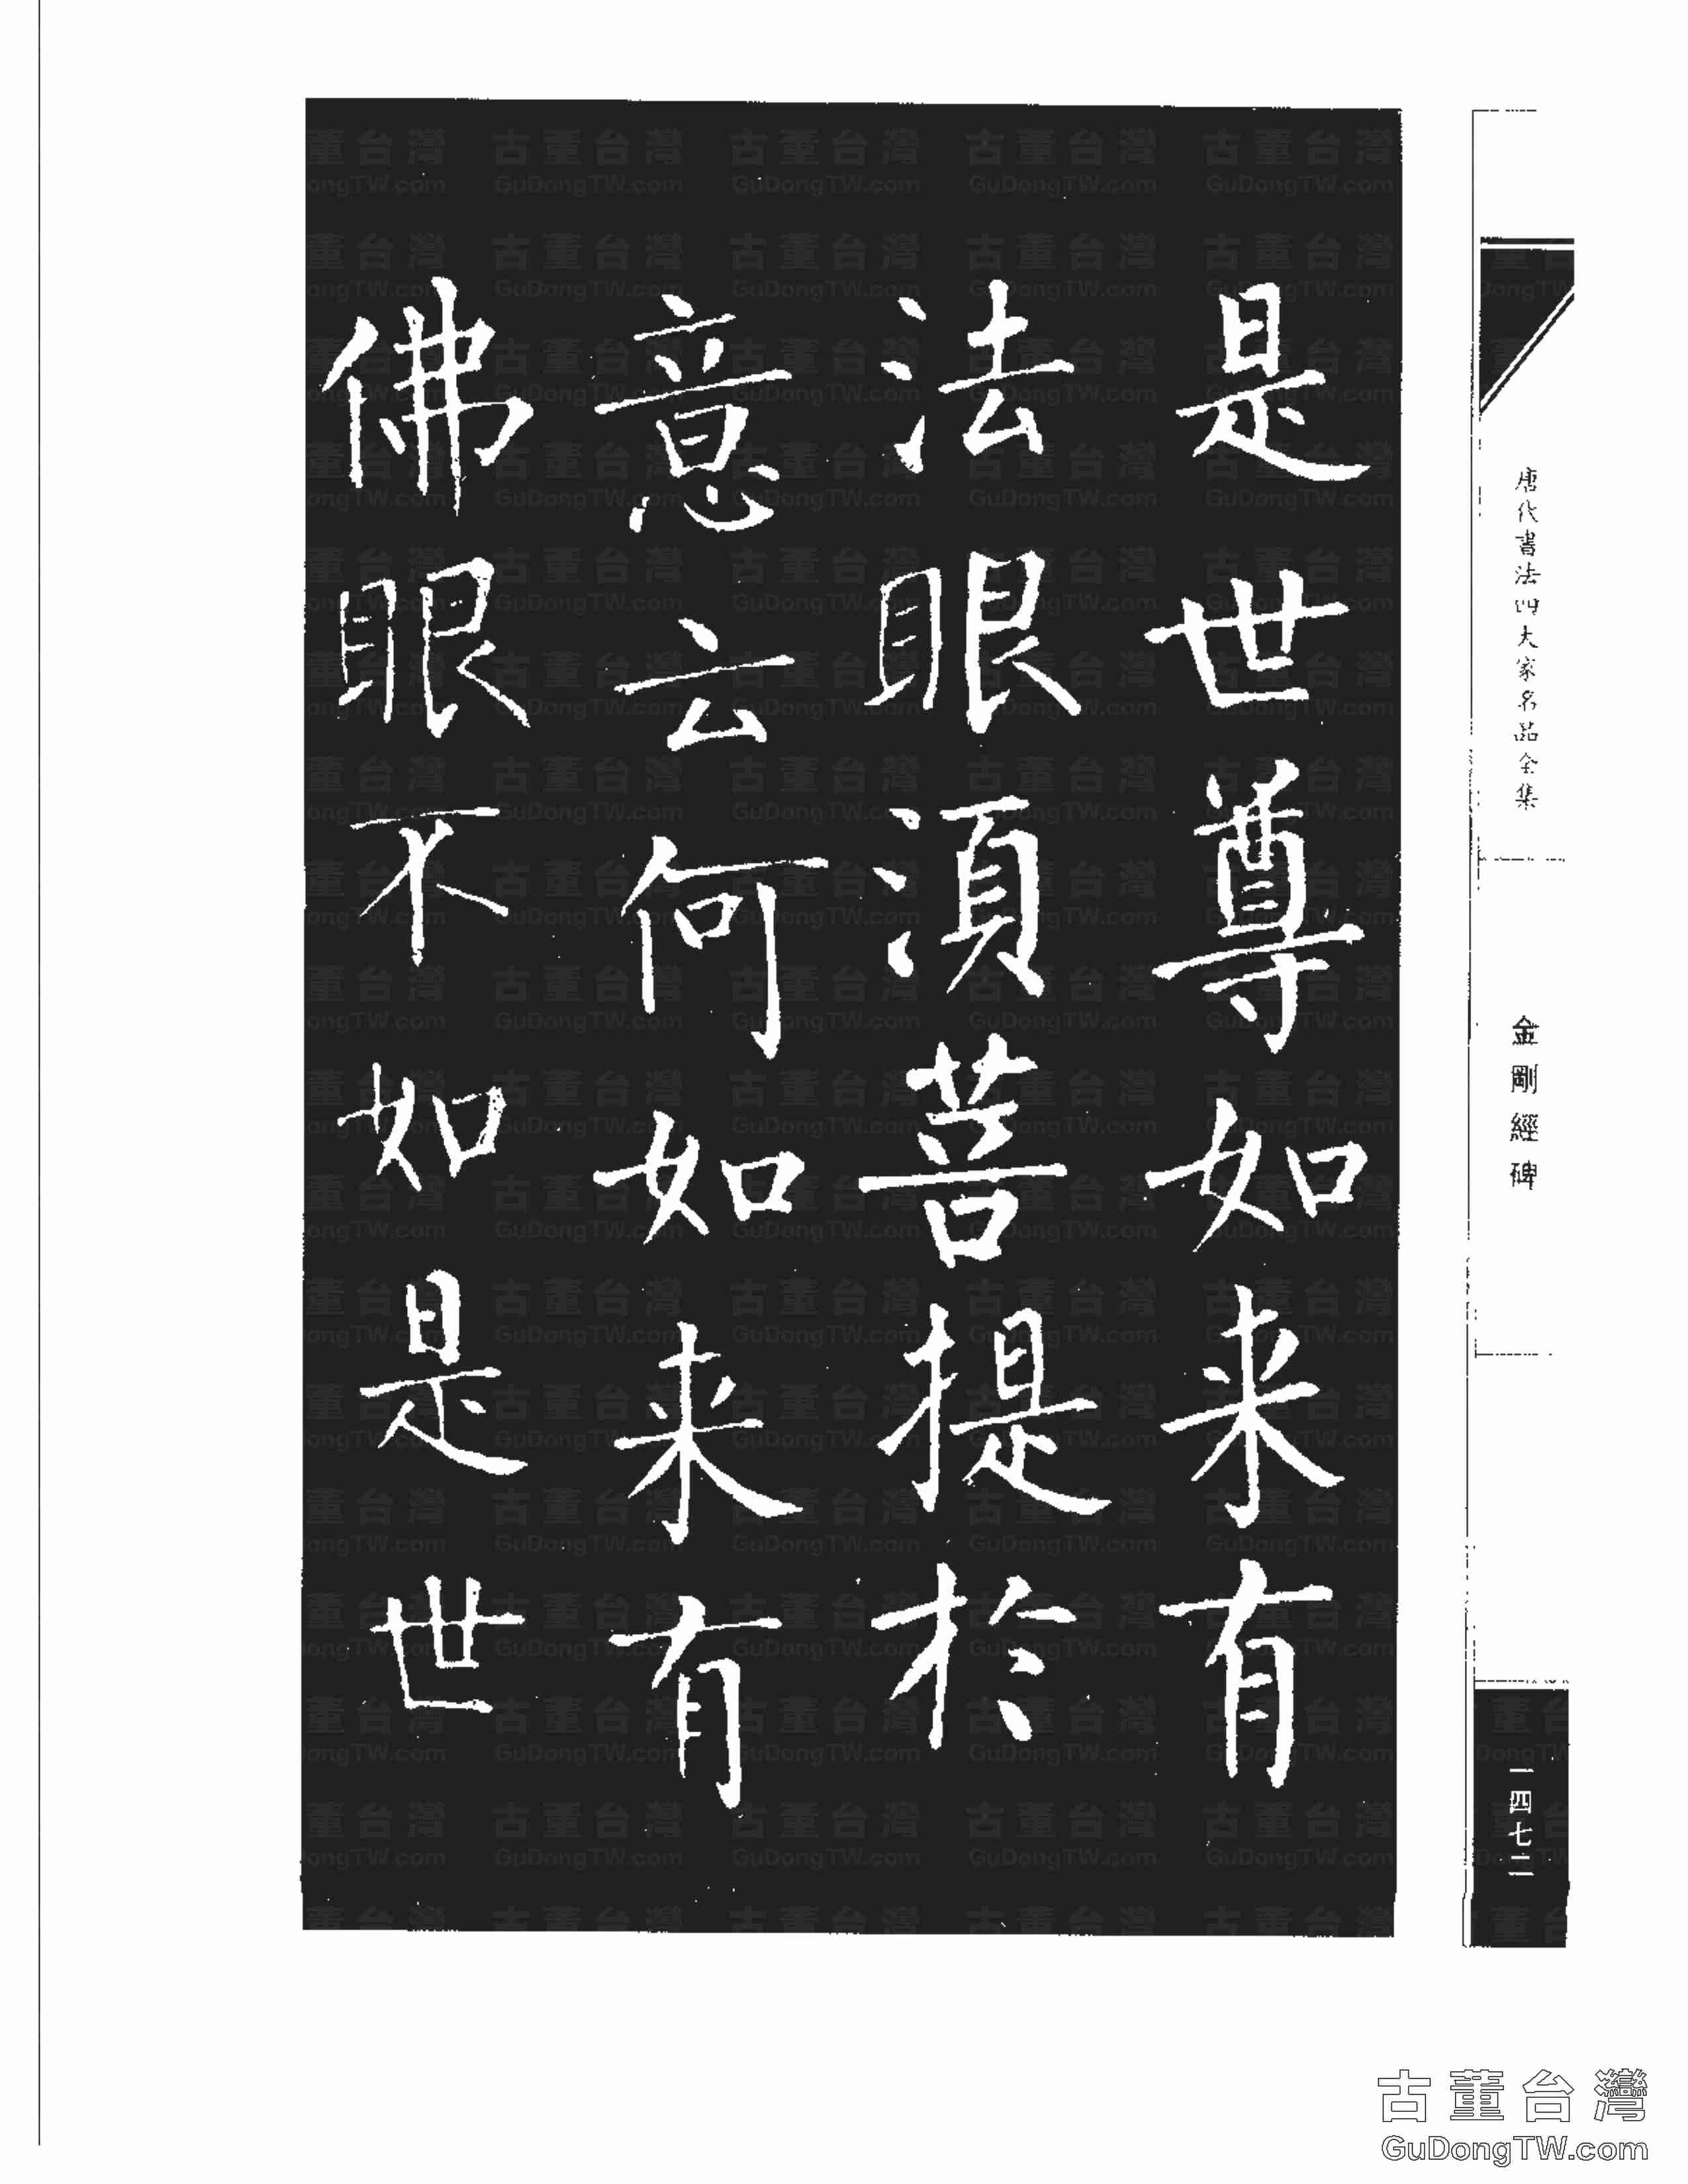 是世尊如来有
法眼湏菩提於
意云何如来有
佛眼不如是世
唐代書法四大家名品全集
金剛經碑
一四七二
古董台灣
GuDongTW.com